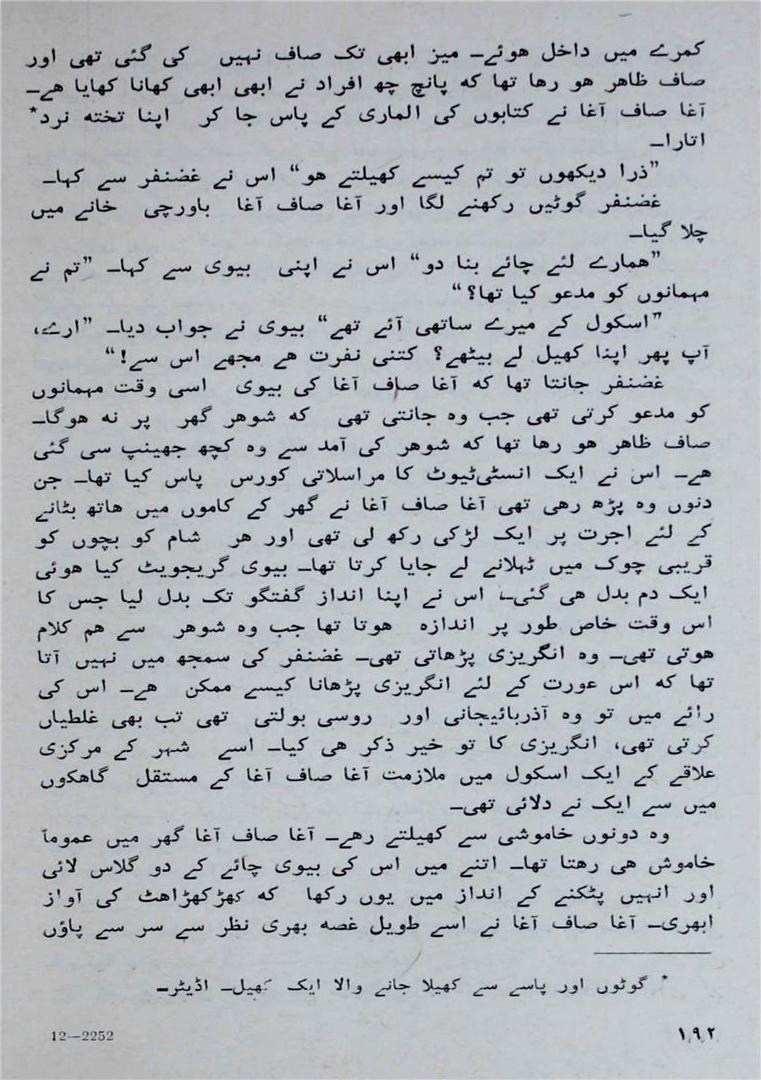 کمرے میں داخل ہوئے۔ میز ابھی تک صاف نہیں کی گئی تھی اور
صاف ظاہر ہو رہا تھا کہ پانچ چھ افراد نے ابھی ابھی کھانا کھایا ہے۔
آغا صاف آغا نے کتابوں کی الماری کے پاس جا کر اپنا تختہ نرد*
اتارا۔
”ذرا دیکھوں تو تم کیسے کھیلتے ہو“ اس نے غضنفر سے کہا۔
غضنفر گوٹیں رکھنے لگا اور آغا صاف آغا باورچی خانے میں
چلا گیا۔
”ہمارے لئے چائے بنا دو“ اس نے اپنی بیوی سے کہا۔ ”تم نے
مہمانوں کو مدعو کیا تھا؟“
”اسکول کے میرے ساتھی آئے تھے“ بیوی نے جواب دیا۔ ”ارے،
آپ پھر اپنا کھیل لے بیٹھے؟ کتنی نفرت ہے مجھے اس سے!“
غضنفر جانتا تھا کہ آغا صاف آغا کی بیوی اسی وقت مہمانوں
کو مدعو کرتی تھی جب وہ جانتی تھی کہ شوہر گھر پر نہ ہوگا۔
صاف ظاہر ہو رہا تھا کہ شوہر کی آمد سے وہ کچھ جھینپ سی گئی
ہے۔ اس نے ایک انسٹی‌ٹیوٹ کا مراسلاتی کورس پاس کیا تھا۔ جن
دنوں وہ پڑھ رہی تھی آغا صاف آغا نے گھر کے کاموں میں ہاتھ بٹانے
کے لئے اجرت پر ایک لڑکی رکھ لی تھی اور ہر شام کو بچوں کو
قریبی چوک میں ٹہلانے لے جایا کرتا تھا۔ بیوی گریجویٹ کیا ہوئی
ایک دم بدل ہی گئی۔ اس نے اپنا انداز گفتگو تک بدل لیا جس کا
اس وقت خاص طور پر اندازہ ہوتا تھا جب وہ شوہر سے ہم کلام
ہوتی تھی۔ وہ انگریزی پڑھاتی تھی۔ غضنفر کی سمجھ میں نہیں آتا
تھا کہ اس عورت کے لئے انگریزی پڑھانا کیسے ممکن ہے۔ اس کی
رائے میں تو وہ آذربائیجانی اور روسی بولتی تھی تب بھی غلطیاں
کرتی تھی، انگریزی کا تو خیر ذکر ہی کیا۔ اسے شہر کے مرکزی
علاقے کے ایک اسکول میں ملازمت آغا صاف آغا کے مستقل گاہکوں
میں سے ایک نے دلائی تھی۔
وہ دونوں خاموشی سے کھیلتے رہے۔ آغا صاف آغا گھر میں عموماً
خاموش ہی رہتا تھا۔ اتنے میں اس کی بیوی چائے کے دو گلاس لائی
اور انہیں پٹکنے کے انداز میں یوں رکھا کہ کھڑکھڑاہٹ کی آواز
ابھری۔ آغا صاف آغا نے اسے طویل غصہ بھری نظر سے سر سے پاؤں
* گوٹوں اور پاسے سے کھیلا جانے والا ایک کھیل۔ اڈیٹر۔
12—2252
۱۹۲